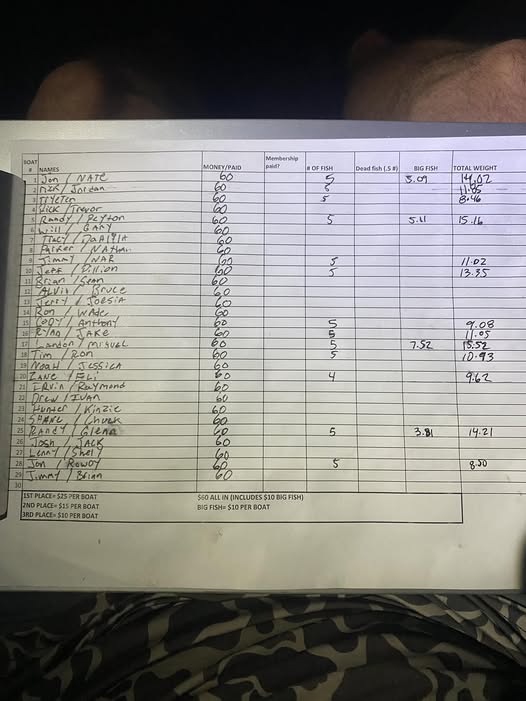 BOAT # NAMES MONEY/PAID Membership paid? # OF FISH Dead fish (.5 #) BIG FISH TOTAL WEIGHT
1 Jon / NATE 60 5 3.09 14.07
2 Jordan 60 5 11.85
3 60 5 8.46
4 Rick / Trevor 60
5 Randy / Peyton 60 5 5.11 15.16
6 Will / GARY 60
7 TRACY / 60
8 Parker / NATHAN 60
9 Jimmy / NAR 60 5 11.02
10 Jeff / Dillion 60 5 13.35
11 Brian / Sean 60
12 ALVIN / Bruce 60
13 Jerry / 60
14 Ron / WADE 60
15 CODY / Anthony 60 5 9.08
16 RYAN / JAKE 60 5 11.05
17 Landon / Miguel 60 5 7.52 15.52
18 Tim / Ron 60 5 10.93
19 NOAH / JESSICA 60
20 ZANE / ELI 60 4 9.62
21 ERVIN / Raymond 60
22 Drew / IVAN 60
23 Hunter / Kinzie 60
24 SHANE / Chuck 60
25 RANDY / Glenn 60 5 3.81 14.21
26 Josh / JACK 60
27 Lenny / Shelly 60
28 Jon / Rowdy 60 5 8.50
29 Jimmy / Brian 60
30
1ST PLACE= $25 PER BOAT $60 ALL IN (INCLUDES $10 BIG FISH)
2ND PLACE= $15 PER BOAT BIG FISH= $10 PER BOAT
3RD PLACE= $10 PER BOAT